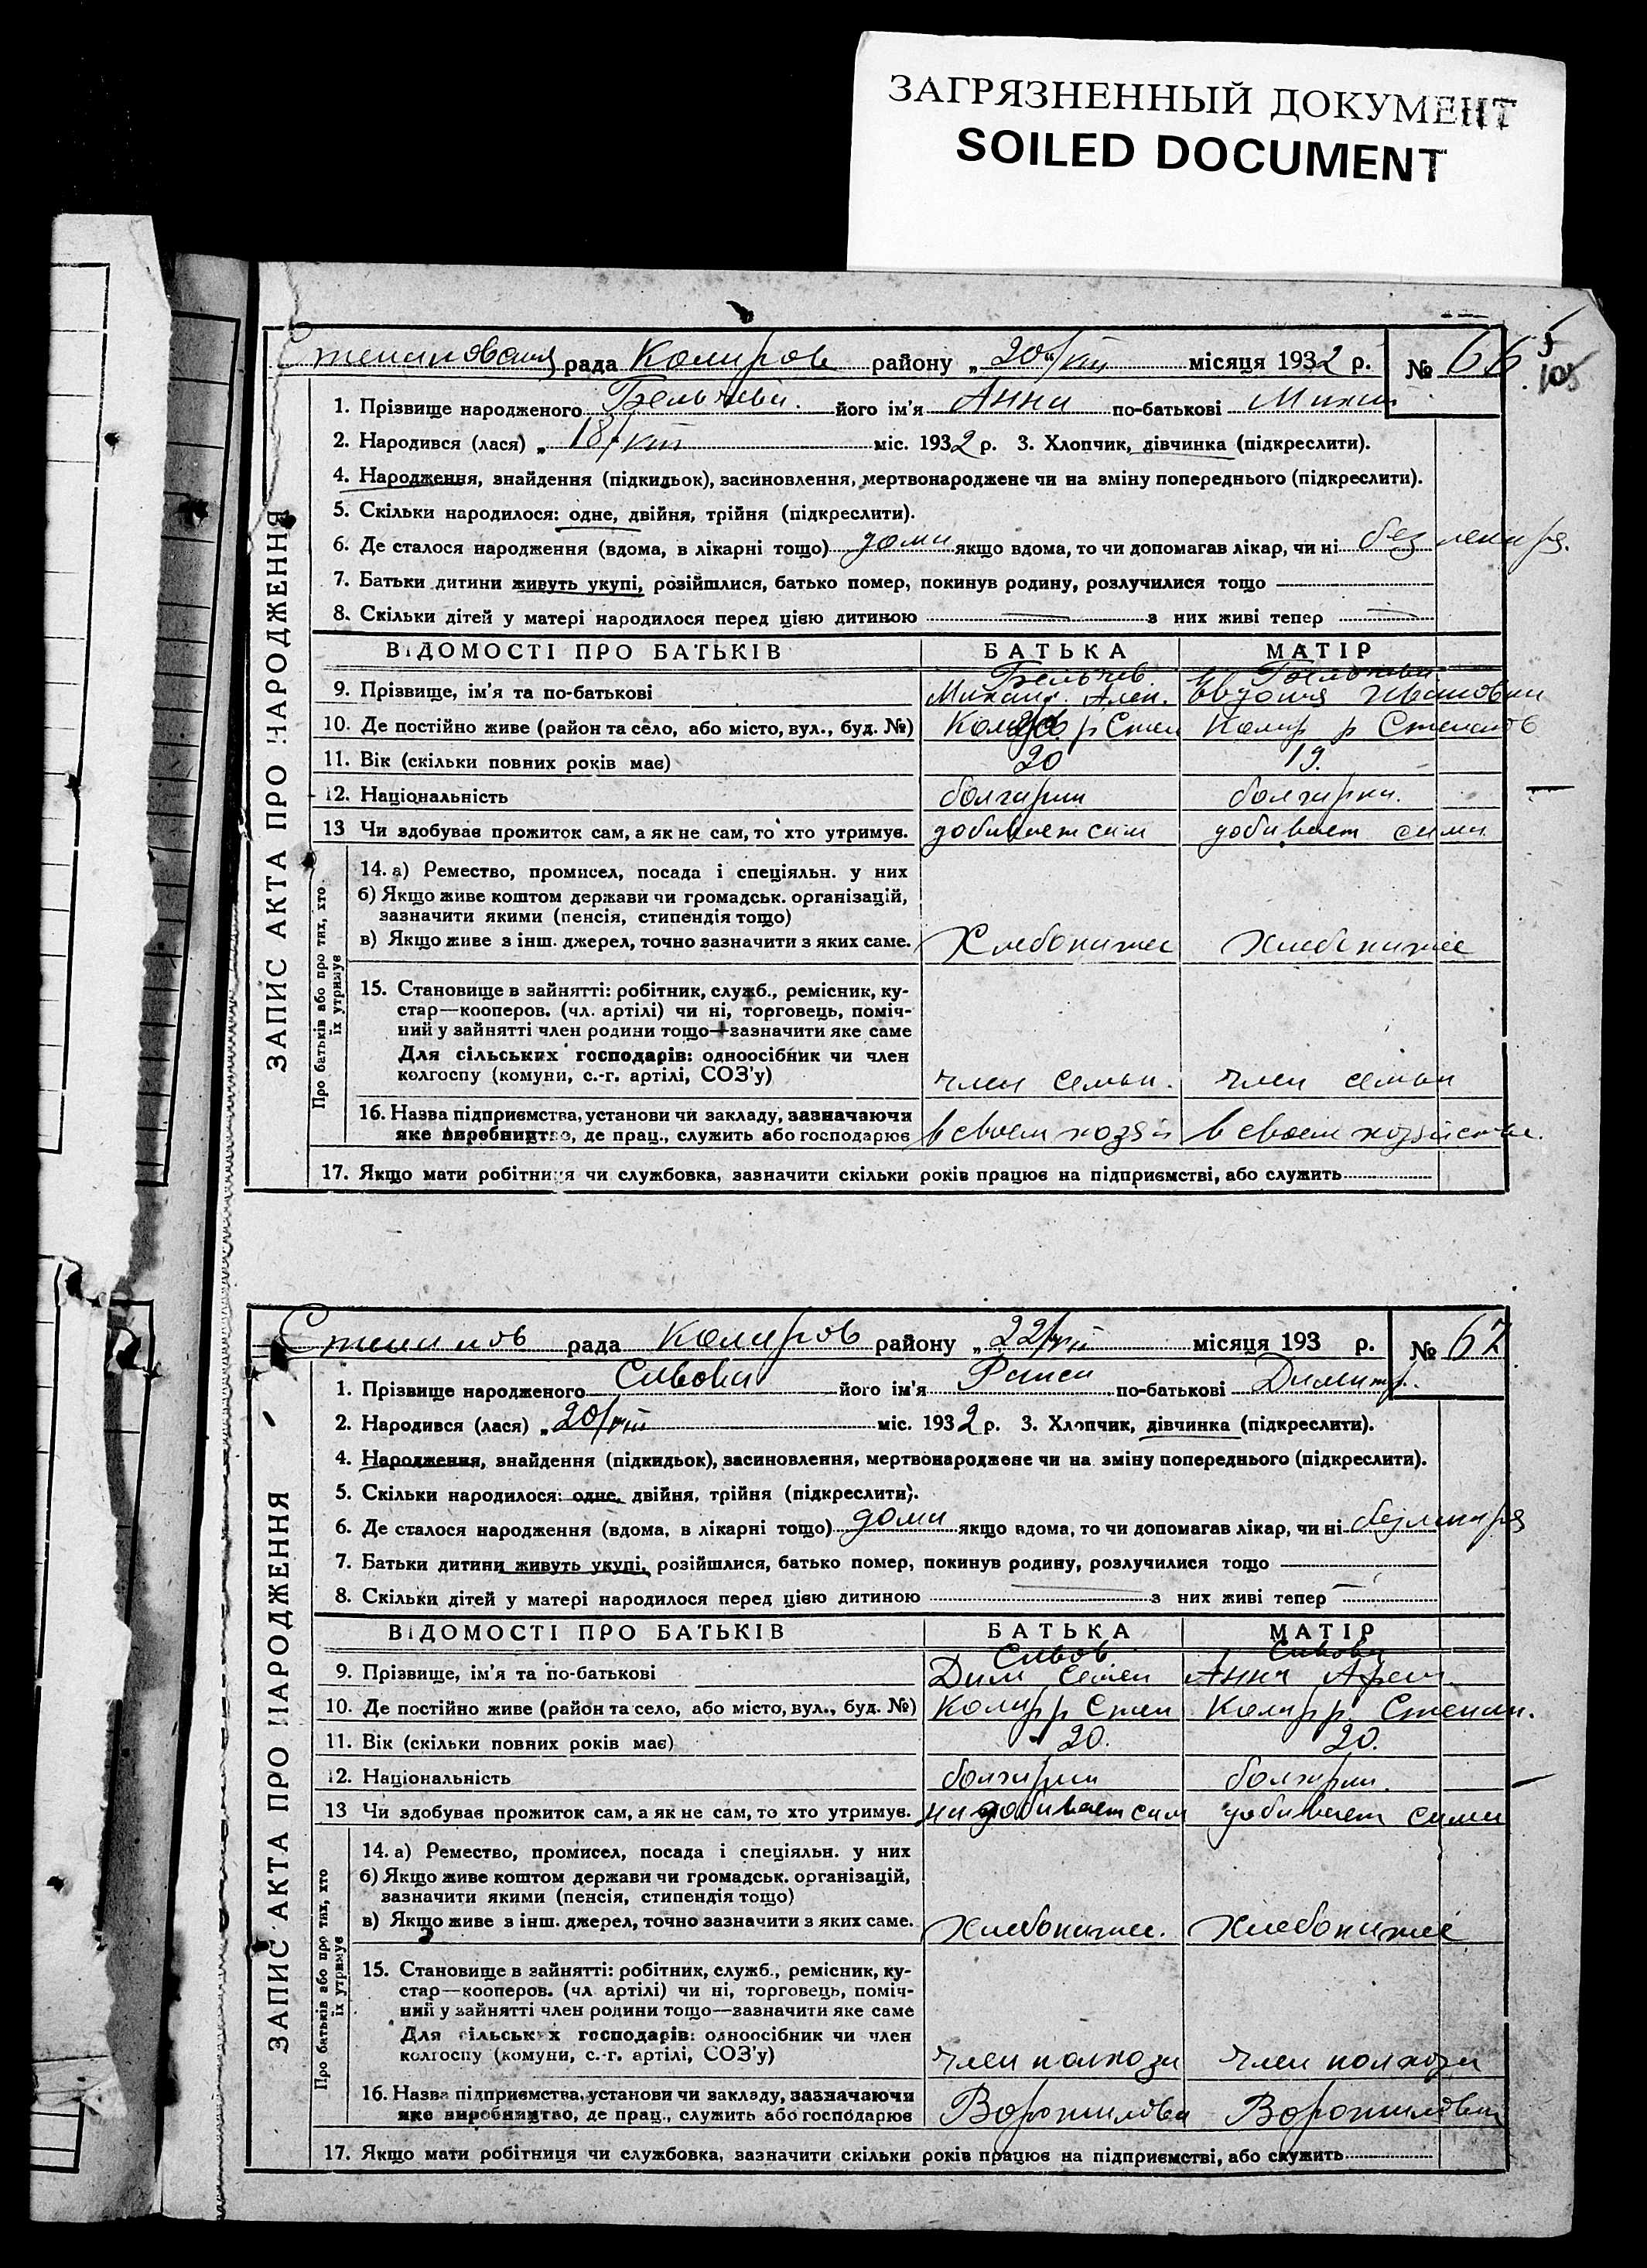 ЗАГРЯЗНЕННЫЙ ДОКУМЕНТ
SOILED DOCUMENT
5
105
Степановская рада Коларов району „20“/VIII місяця 1932 р. № 66
1. Прізвище народженого Бельчева. його ім'я Анна по-батькові Михаил
2. Народився (лася) „ 18/VIII міс. 1932 р. 3. Хлопчик, дівчинка (підкреслити).
4. Народження, знайдення (підкидьок), засиновлення, мертвонароджене чи на зміну попереднього (підкреслити).
5. Скільки народилося: одне, двійня, трійня (підкреслити).
6. Де сталося народження (вдома, в лікарні тощо) дома якщо вдома, то чи допомагав лікар, чи ні без лекаря.
7. Батьки дитини живуть укупі, розійшлися, батько помер, покинув родину, розлучилися тощо
8. Скільки дітей у матері народилося перед цією дитиною з них живі тепер
ЗАПИС АКТА ПРО НАРОДЖЕННЯ
ВІДОМОСТІ ПРО БАТЬКІВ БАТЬКА МАТІР
Бельчев. Бельчева
9. Прізвище, ім'я та по-батькові Михаил Алек. Евдокия Ивановна
10. Де постійно живе (район та село, або місто, вул., буд. №) Колар р Степ Колар р Степанов
11. Вік (скільки повних років має) 20 19.
12. Національність болгарин болгарка.
13 Чи здобуває прожиток сам, а як не сам, то хто утримує. добивает сам добивает сама
Про батьків або про тих, хто їх утримує
14. а) Ремество, промисел, посада і спеціяльн. у них
б) Якщо живе коштом держави чи громадськ. організацій,
зазначити якими (пенсія, стипендія тощо)
в) Якщо живе з інш. джерел, точно зазначити з яких саме. Хлебопашес Хлебопашес
15. Становище в зайнятті: робітник, служб., ремісник, ку-
стар—кооперов. (чл. артілі) чи ні, торговець, поміч-
ний у зайнятті член родини тощо—зазначити яке саме
Для сільських господарів: одноосібник чи член
колгоспу (комуни, с.-г. артілі, СОЗ'у) член семьи. член семьи
16. Назва підприємства, установи чи закладу, зазначаючи
яке виробництво, де прац., служить або господарює в своем хозяй в своем хозяйстве.
17. Якщо мати робітниця чи службовка, зазначити скільки років працює на підприємстві, або служить
Степанов рада Коларов району „22/VIII місяця 193 р. № 67
1. Прізвище народженого Сивова його ім'я Раиса по-батькові Димитр.
2. Народився (лася) „20/VIII міс. 1932 р. 3. Хлопчик, дівчинка (підкреслити).
4. Народження, знайдення (підкидьок), засиновлення, мертвонароджене чи на зміну попереднього (підкреслити).
5. Скільки народилося: одне, двійня, трійня (підкреслити).
6. Де сталося народження (вдома, в лікарні тощо) дома якщо вдома, то чи допомагав лікар, чи ні без лекаря
7. Батьки дитини живуть укупі, розійшлися, батько помер, покинув родину, розлучилися тощо
8. Скільки дітей у матері народилося перед цією дитиною з них живі тепер
ЗАПИС АКТА ПРО НАРОДЖЕННЯ
ВІДОМОСТІ ПРО БАТЬКІВ БАТЬКА МАТІР
Сивов Сивова
9. Прізвище, ім'я та по-батькові Дим Семен Анна
10. Де постійно живе (район та село, або місто, вул., буд. №) Колар р Степ Колар р. Степан.
11. Вік (скільки повних років має) 20. 20.
12. Національність болгарин болгарка.
13 Чи здобуває прожиток сам, а як не сам, то хто утримує. добивает сам добивает сама
Про батьків або про тих, хто їх утримує
14. а) Ремество, промисел, посада і спеціяльн. у них
б) Якщо живе коштом держави чи громадськ. організацій,
зазначити якими (пенсія, стипендія тощо)
в) Якщо живе з інш. джерел, точно зазначити з яких саме. Хлебопашес. Хлебопашес
15. Становище в зайнятті: робітник, служб., ремісник, ку-
стар—кооперов. (чл артілі) чи ні, торговець, поміч-
ний у зайнятті член родини тощо—зазначити яке саме
Для сільських господарів: одноосібник чи член
колгоспу (комуни, с.-г. артілі, СОЗ'у) член колхоза член колхоза
16. Назва підприємства, установи чи закладу, зазначаючи
яке виробництво, де прац., служить або господарює Ворошилова Ворошилова
17. Якщо мати робітниця чи службовка, зазначити скільки років працює на підприємстві, або служить